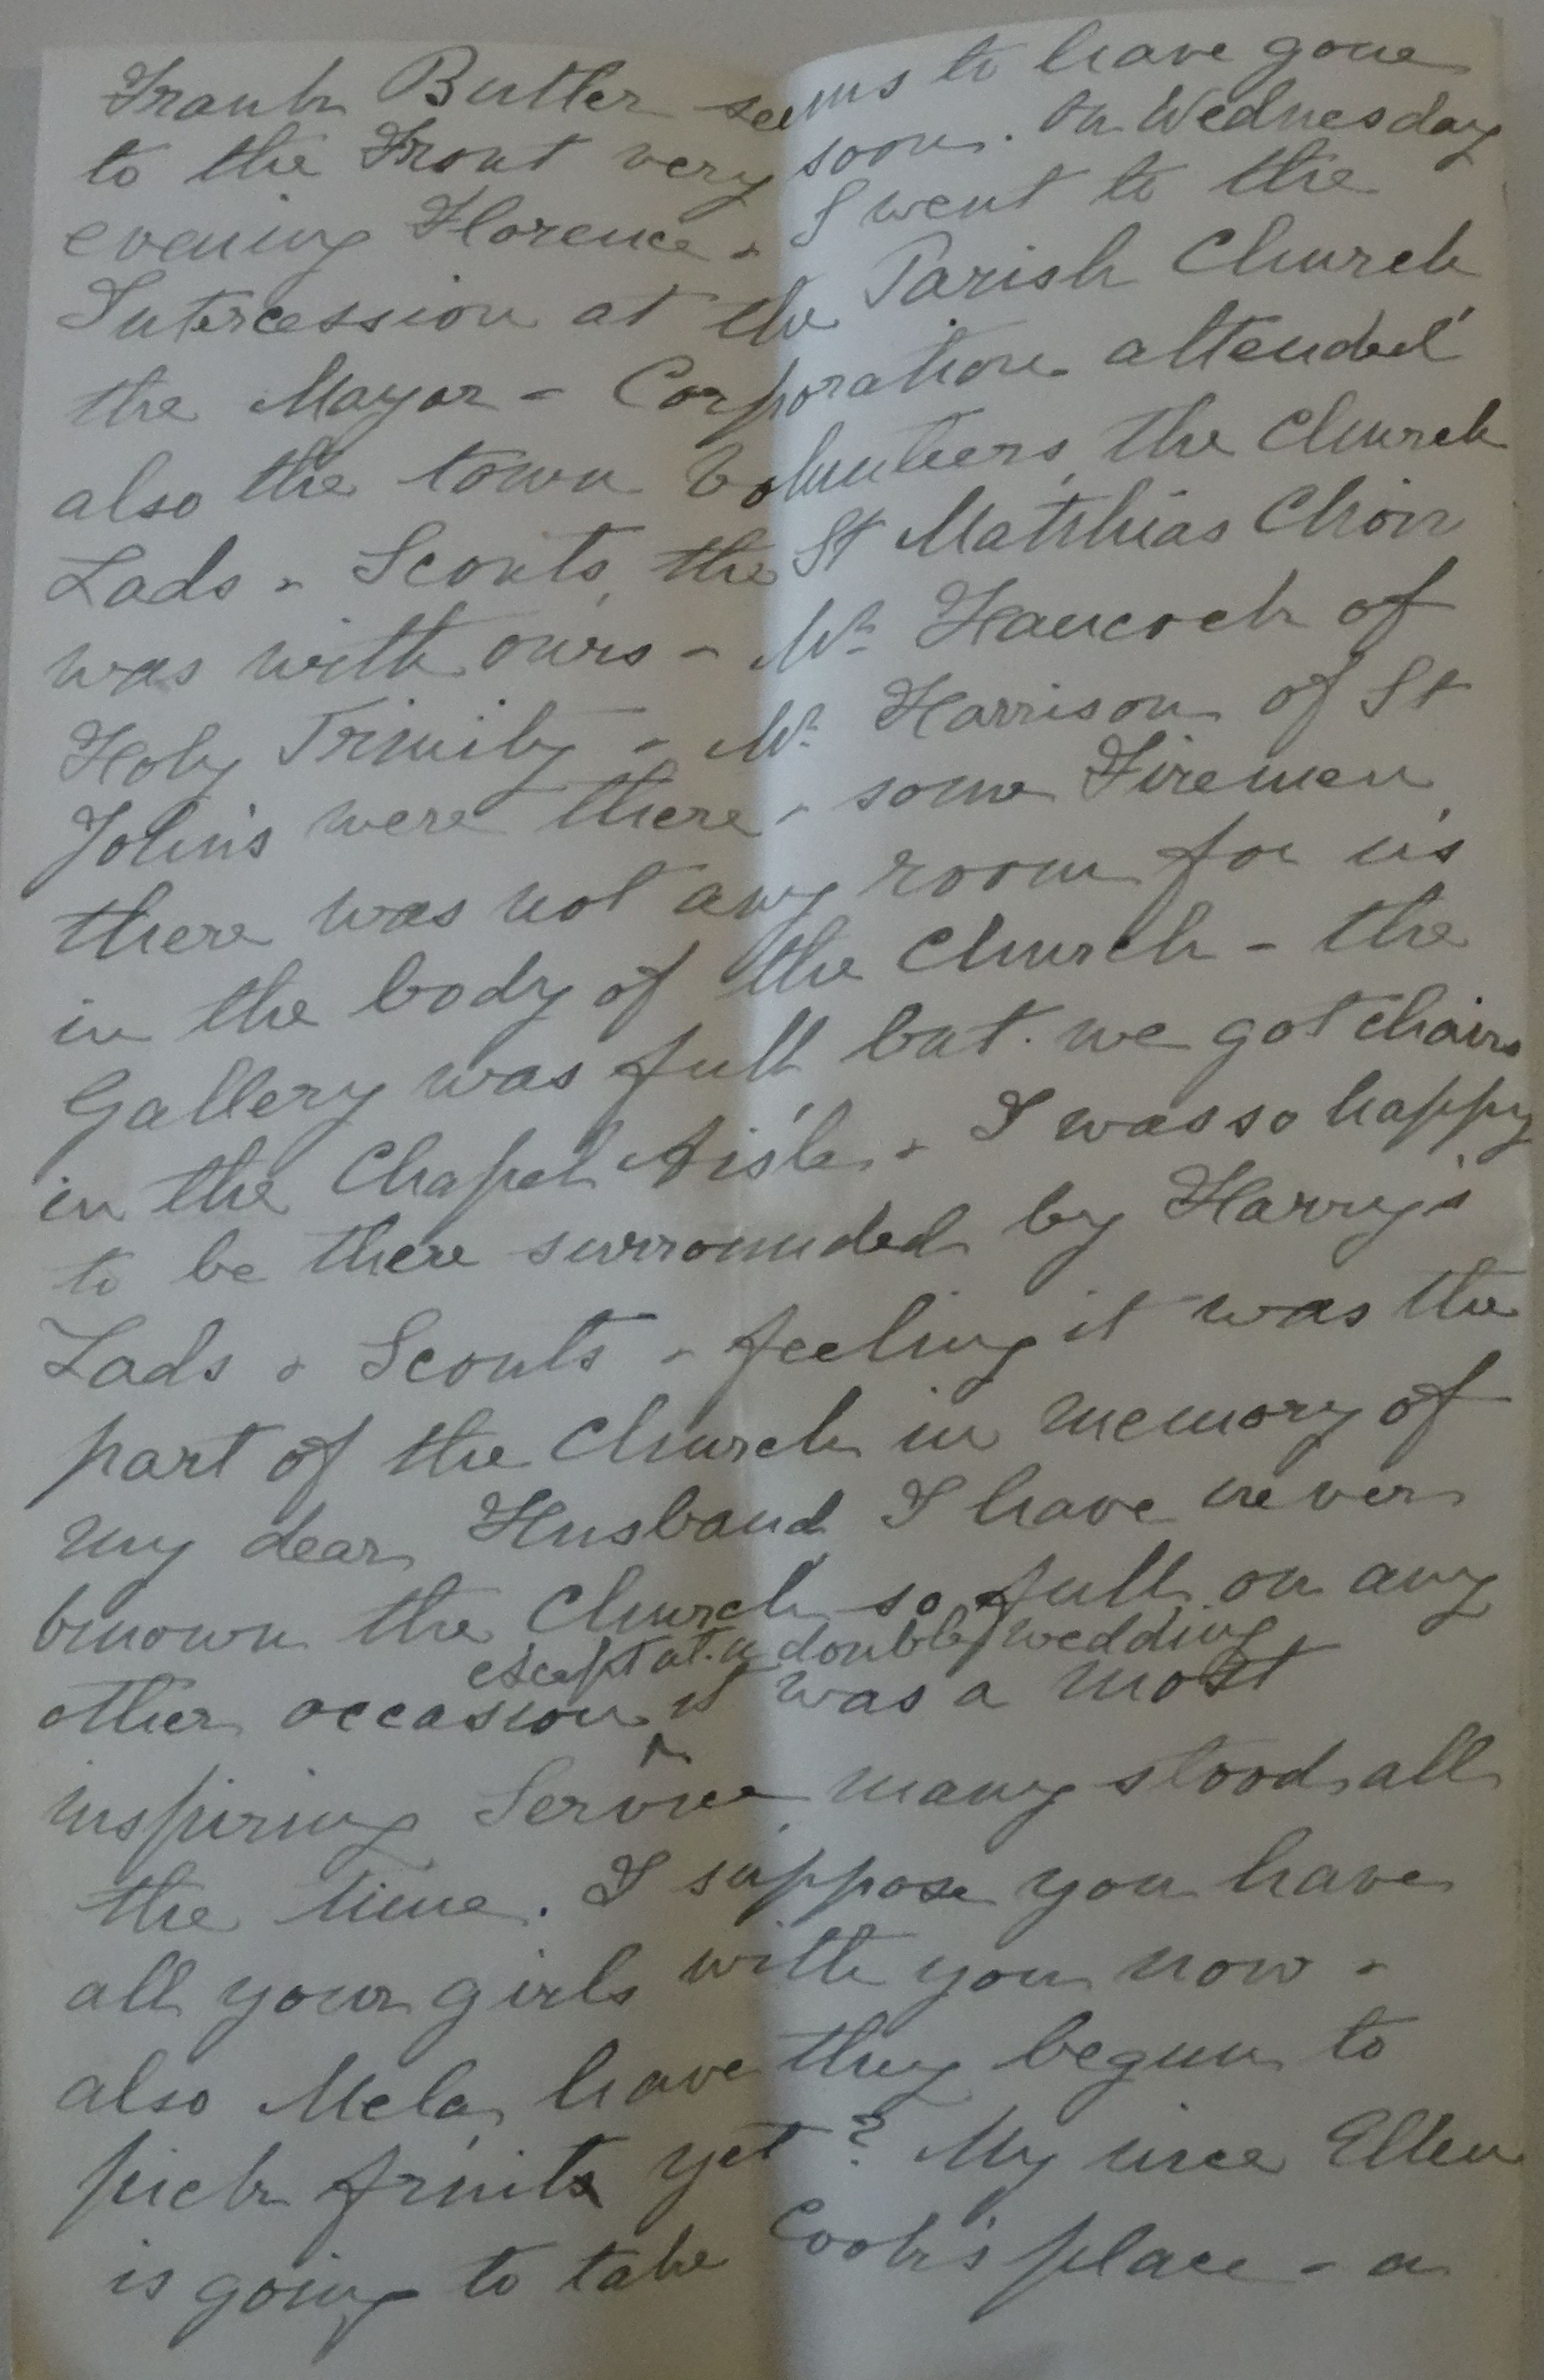 Frank Butler seems to have gone
to the Front very soon. On Wednesday
evening Florence & I went to the
Intercession at the Parish Church
the Mayor & Corporation attended
also the town Volunteers, the Church
Lads & Scouts, the St Matthias Choir
was with ours - Mr Hancock of
Holy Trinity - Mr Harrison of St
John's were there & some Firemen
there was not any room for us
in the body of the Church - the
Gallery was full but we got chairs
in the Chapel Aisle & I was so happy
to be there surrounded by Harry's
Lads & Scouts - feeling it was the
part of the Church in memory of
my dear Husband I have never
known the Church so full on any
except at a double wedding
other occasion ^ it was a most
inspiring Service, many stood all
the time. I suppose you have
all your girls with you now -
also Mela, have they begun to
pick fruits yet? My niece Ellen
is going to take Cook's place - a